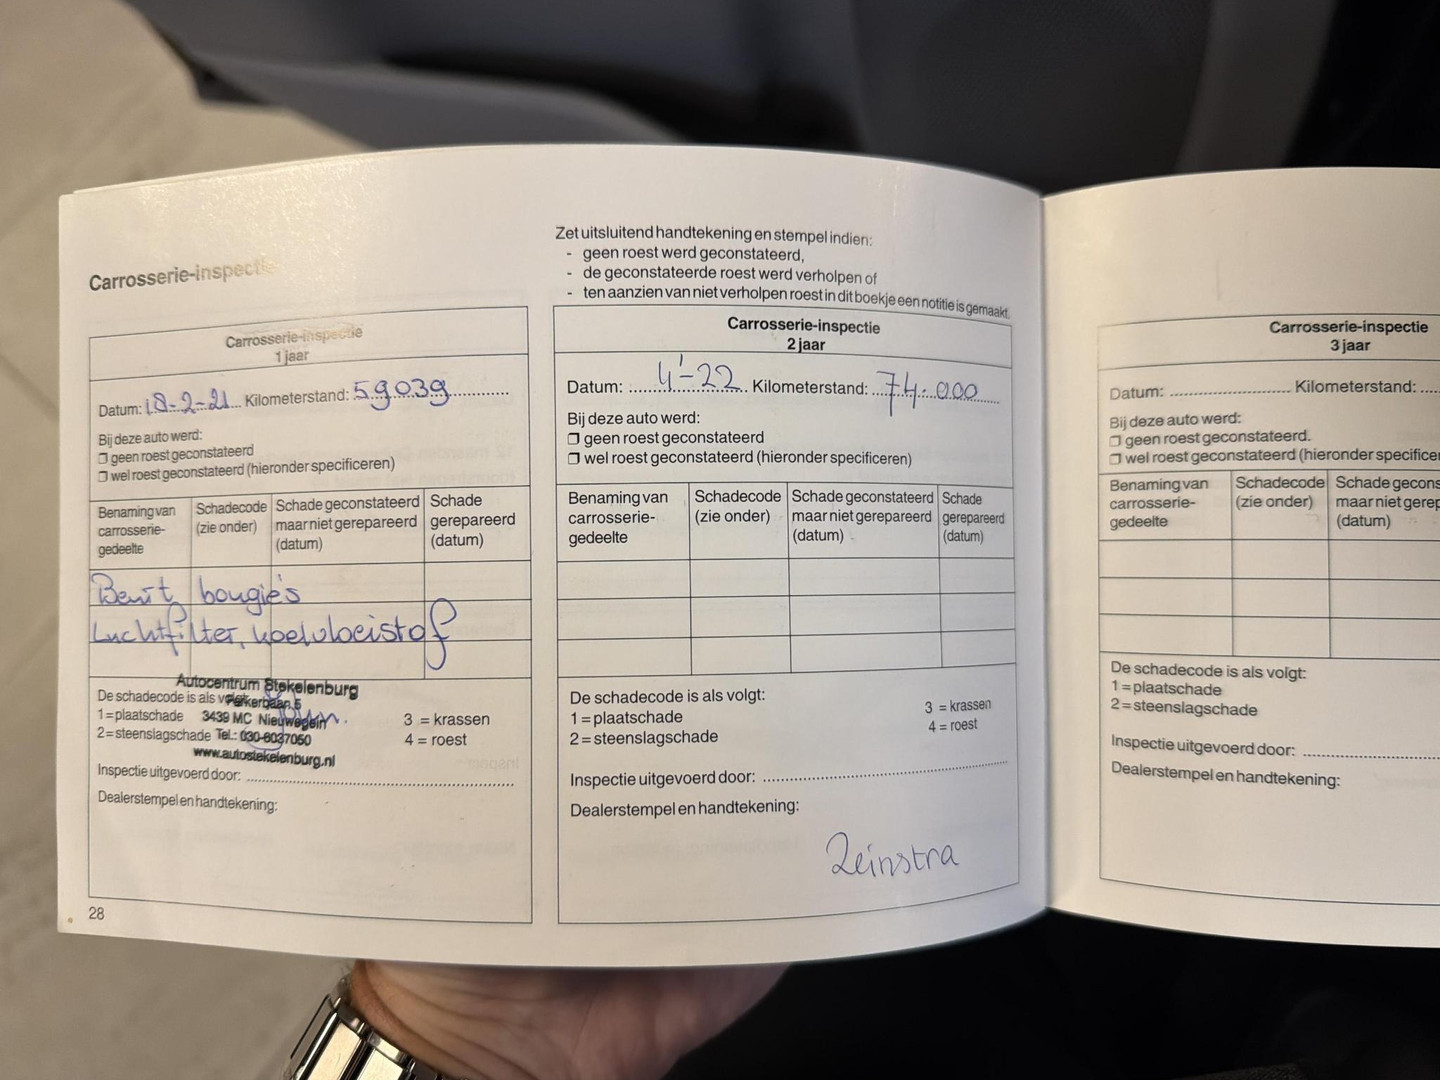 Carrosserie-inspectie
Carrosserie-inspectie
1 jaar
Datum: 18-2-21 Kilometerstand: 59039
Bij deze auto werd:
❒ geen roest geconstateerd
❒ wel roest geconstateerd (hieronder specificeren)
Benaming van carrosserie-gedeelte
Schadecode (zie onder)
Schade geconstateerd maar niet gerepareerd (datum)
Schade gerepareerd (datum)
Beurt bougie's
Luchtfilter, koelvloeistof
Autocentrum Stekelenburg
Parkerbaan 5
3439 MC Nieuwegein
Tel.: 030-6037050
www.autostekelenburg.nl
De schadecode is als volgt:
1 = plaatschade
2 = steenslagschade
3 = krassen
4 = roest
Inspectie uitgevoerd door:
Dealerstempel en handtekening:
28
Zet uitsluitend handtekening en stempel indien:
- geen roest werd geconstateerd,
- de geconstateerde roest werd verholpen of
- ten aanzien van niet verholpen roest in dit boekje een notitie is gemaakt.
Carrosserie-inspectie
2 jaar
Datum: 4-22 Kilometerstand: 74.000
Bij deze auto werd:
❒ geen roest geconstateerd
❒ wel roest geconstateerd (hieronder specificeren)
Benaming van carrosserie-gedeelte
Schadecode (zie onder)
Schade geconstateerd maar niet gerepareerd (datum)
Schade gerepareerd (datum)
De schadecode is als volgt:
1 = plaatschade
2 = steenslagschade
3 = krassen
4 = roest
Inspectie uitgevoerd door:
Dealerstempel en handtekening:
Zeinstra
Carrosserie-inspectie
3 jaar
Datum: Kilometerstand:
Bij deze auto werd:
❒ geen roest geconstateerd.
❒ wel roest geconstateerd (hieronder specifice
Benaming van carrosserie-gedeelte
Schadecode (zie onder)
Schade gecons
maar niet gerep
(datum)
De schadecode is als volgt:
1 = plaatschade
2 = steenslagschade
Inspectie uitgevoerd door:
Dealerstempel en handtekening: